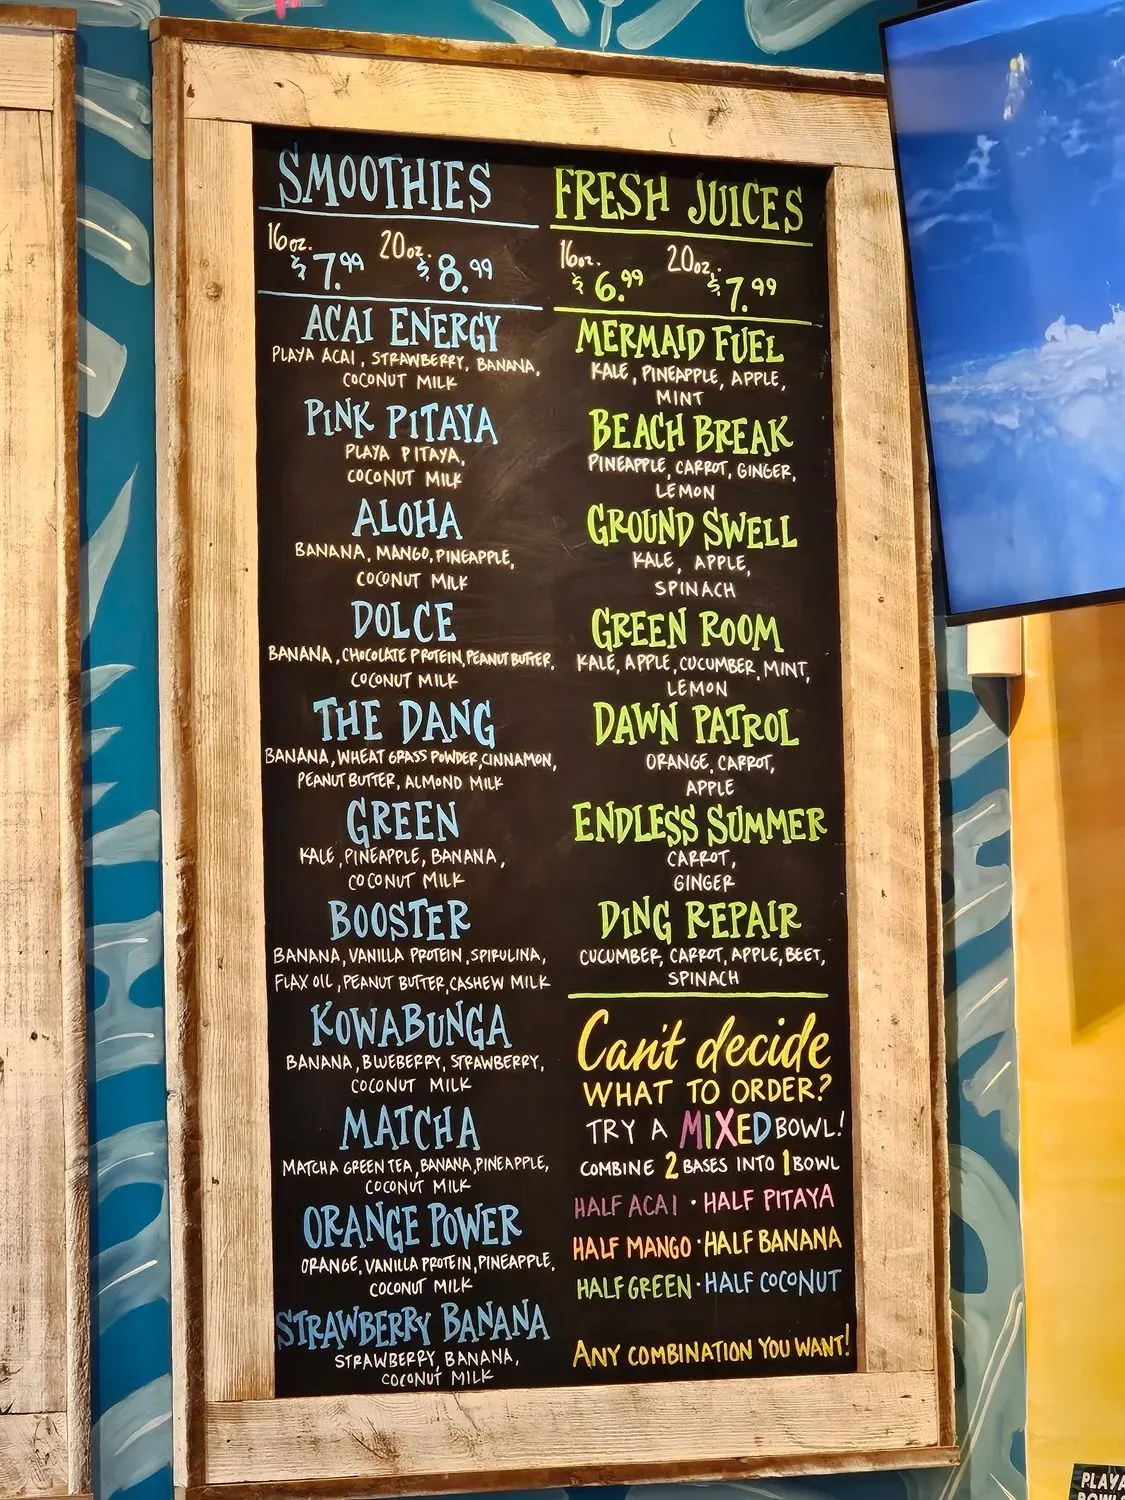 SMOOTHIES
16oz. $7.99 20oz. $8.99
ACAI ENERGY
PLAYA ACAI, STRAWBERRY, BANANA,
COCONUT MILK
PINK PITAYA
PLAYA PITAYA,
COCONUT MILK
ALOHA
BANANA, MANGO, PINEAPPLE,
COCONUT MILK
DOLCE
BANANA, CHOCOLATE PROTEIN, PEANUT BUTTER,
COCONUT MILK
THE DANG
BANANA, WHEAT GRASS POWDER, CINNAMON,
PEANUT BUTTER, ALMOND MILK
GREEN
KALE, PINEAPPLE, BANANA,
COCONUT MILK
BOOSTER
BANANA, VANILLA PROTEIN, SPIRULINA,
FLAX OIL, PEANUT BUTTER, CASHEW MILK
KOWABUNGA
BANANA, BLUEBERRY, STRAWBERRY,
COCONUT MILK
MATCHA
MATCHA GREEN TEA, BANANA, PINEAPPLE,
COCONUT MILK
ORANGE POWER
ORANGE, VANILLA PROTEIN, PINEAPPLE,
COCONUT MILK
STRAWBERRY BANANA
STRAWBERRY, BANANA,
COCONUT MILK
FRESH JUICES
16oz. $6.99 20oz. $7.99
MERMAID FUEL
KALE, PINEAPPLE, APPLE,
MINT
BEACH BREAK
PINEAPPLE, CARROT, GINGER,
LEMON
GROUND SWELL
KALE, APPLE,
SPINACH
GREEN ROOM
KALE, APPLE, CUCUMBER, MINT,
LEMON
DAWN PATROL
ORANGE, CARROT,
APPLE
ENDLESS SUMMER
CARROT,
GINGER
DING REPAIR
CUCUMBER, CARROT, APPLE, BEET,
SPINACH
Can't decide
WHAT TO ORDER?
TRY A MIXED BOWL!
COMBINE 2 BASES INTO 1 BOWL
HALF ACAI · HALF PITAYA
HALF MANGO · HALF BANANA
HALF GREEN · HALF COCONUT
ANY COMBINATION YOU WANT!
PLAYA
BOWLS